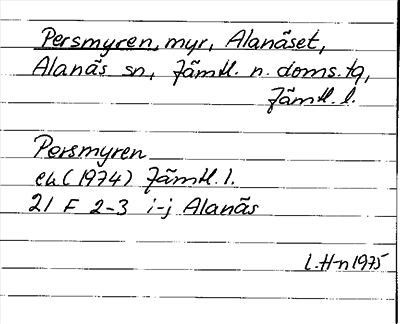 Persmyren, myr, Alanäset,
Alanäs sn, Jämtl. n. doms. tg,
Jämtl. l.
Persmyren
ek (1974) Jämtl. l.
21 F 2-3 i-j Alanäs
L. H-n 1975